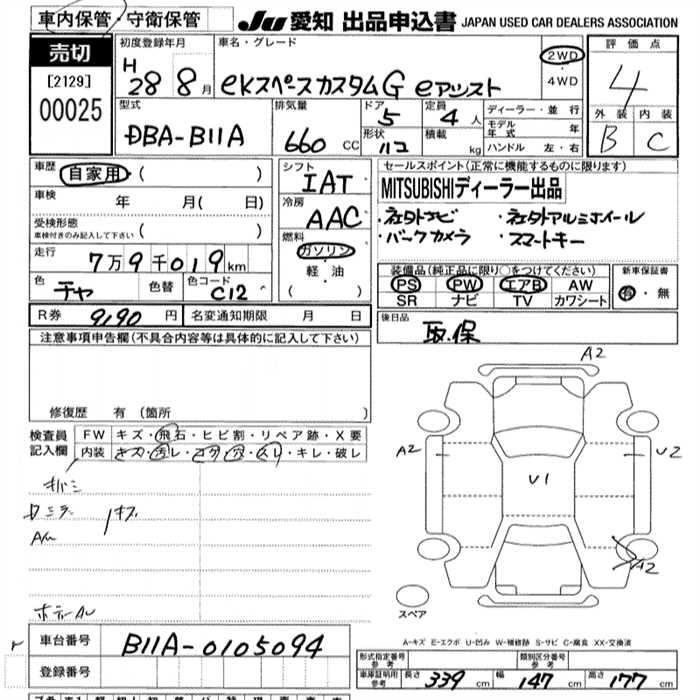 車内保管・守衛保管
JU 愛知 出品申込書 JAPAN USED CAR DEALERS ASSOCIATION
売切
[2129]
00025
初度登録年月
H 28 8月
車名・グレード
eKスペースカスタムG eアシスト
2WD
・
4WD
評価点
4
外装 内装
B C
型式
DBA-B11A
排気量
660 CC
ドア
5
形状
定員
4人
積載
kg
ディーラー・並行
モデル年式 年
ハンドル 左・右
車歴
自家用 ( )
車検
年 月( 日)
受検形態
車検付きのみ記入して下さい ( )
走行
7万9千019km
色
チャ
色替
色コード
C12
シフト
IAT
冷房
AAC
燃料
ガソリン
・
軽・油
( )
セールスポイント(正常に機能するものに限ります)
MITSUBISHIディーラー出品
・社外ナビ ・社外アルミホイール
・バックカメラ ・スマートキー
装備品(純正品に限り○をつけてください)
PS PW エアB AW
SR ナビ TV カワシート
新車保証書
有・無
R券 9190円
名変通知期限 月 日
後日品
取.保
注意事項申告欄(不具合内容等は具体的に記入して下さい)
修復歴 有 (箇所 )
検査員記入欄
FW キズ・飛石・ヒビ割・リペア跡・X要
内装 キズ・汚レ・コゲ・穴・スレ・キレ・破レ
A2
A2
U2
U1
A2
スペア
A-キズ E-エクボ U-凹み W-補修跡 S-サビ C-腐食 XX-交換済
車台番号
B11A-0105094
登録番号
形式指定番号
参考
類別区分番号
参考
車庫証明用
参考
長さ 339cm 幅 147cm 高さ 177cm